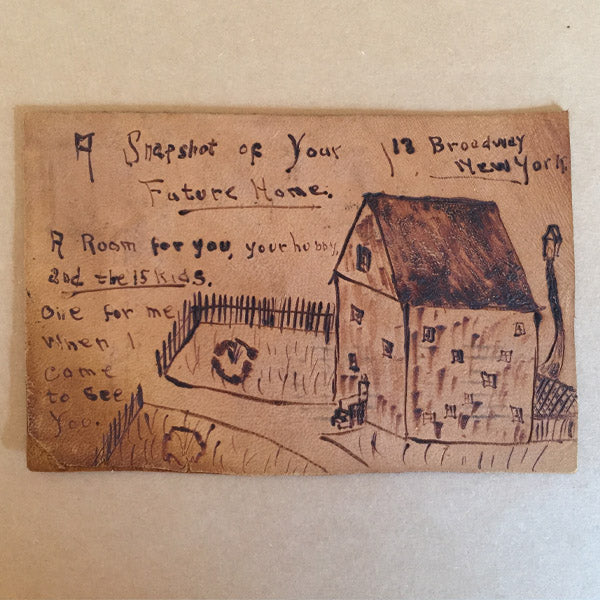 A Snapshot of Your
Future Home.
18 Broadway
New York.
A Room for you, your hubby,
and the 15 kids.
One for me
when I
come
to see
you.